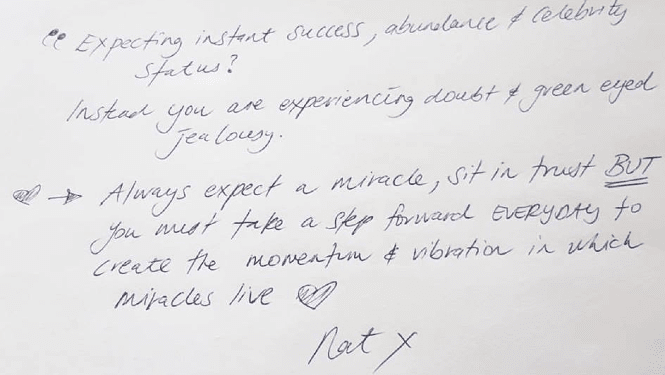 “ Expecting instant success, abundance & celebrity
status?
Instead you are experiencing doubt & green eyed
jealousy.
→ Always expect a miracle, sit in trust BUT
you must take a step forward EVERYDAY to
create the momentum & vibration in which
miracles live
Nat x